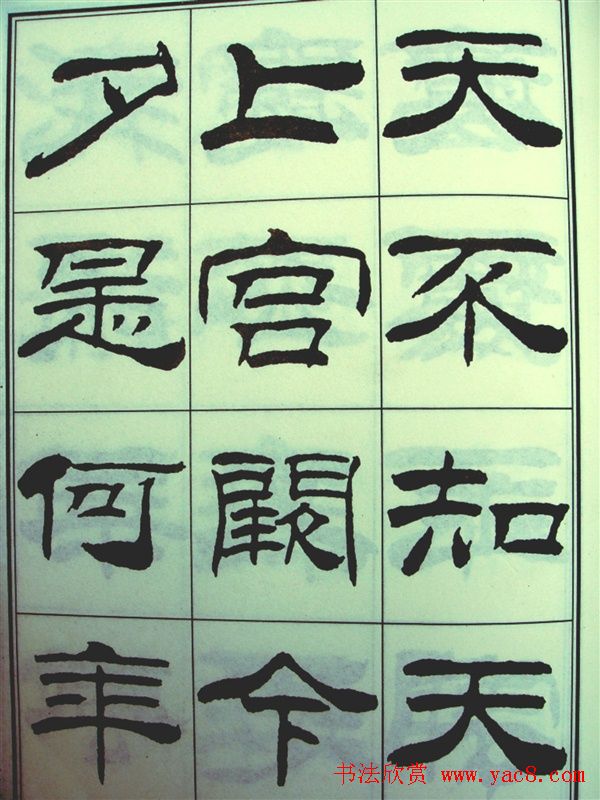 天不知天
上宫阙今
夕是何年
书法欣赏 www.yac8.com